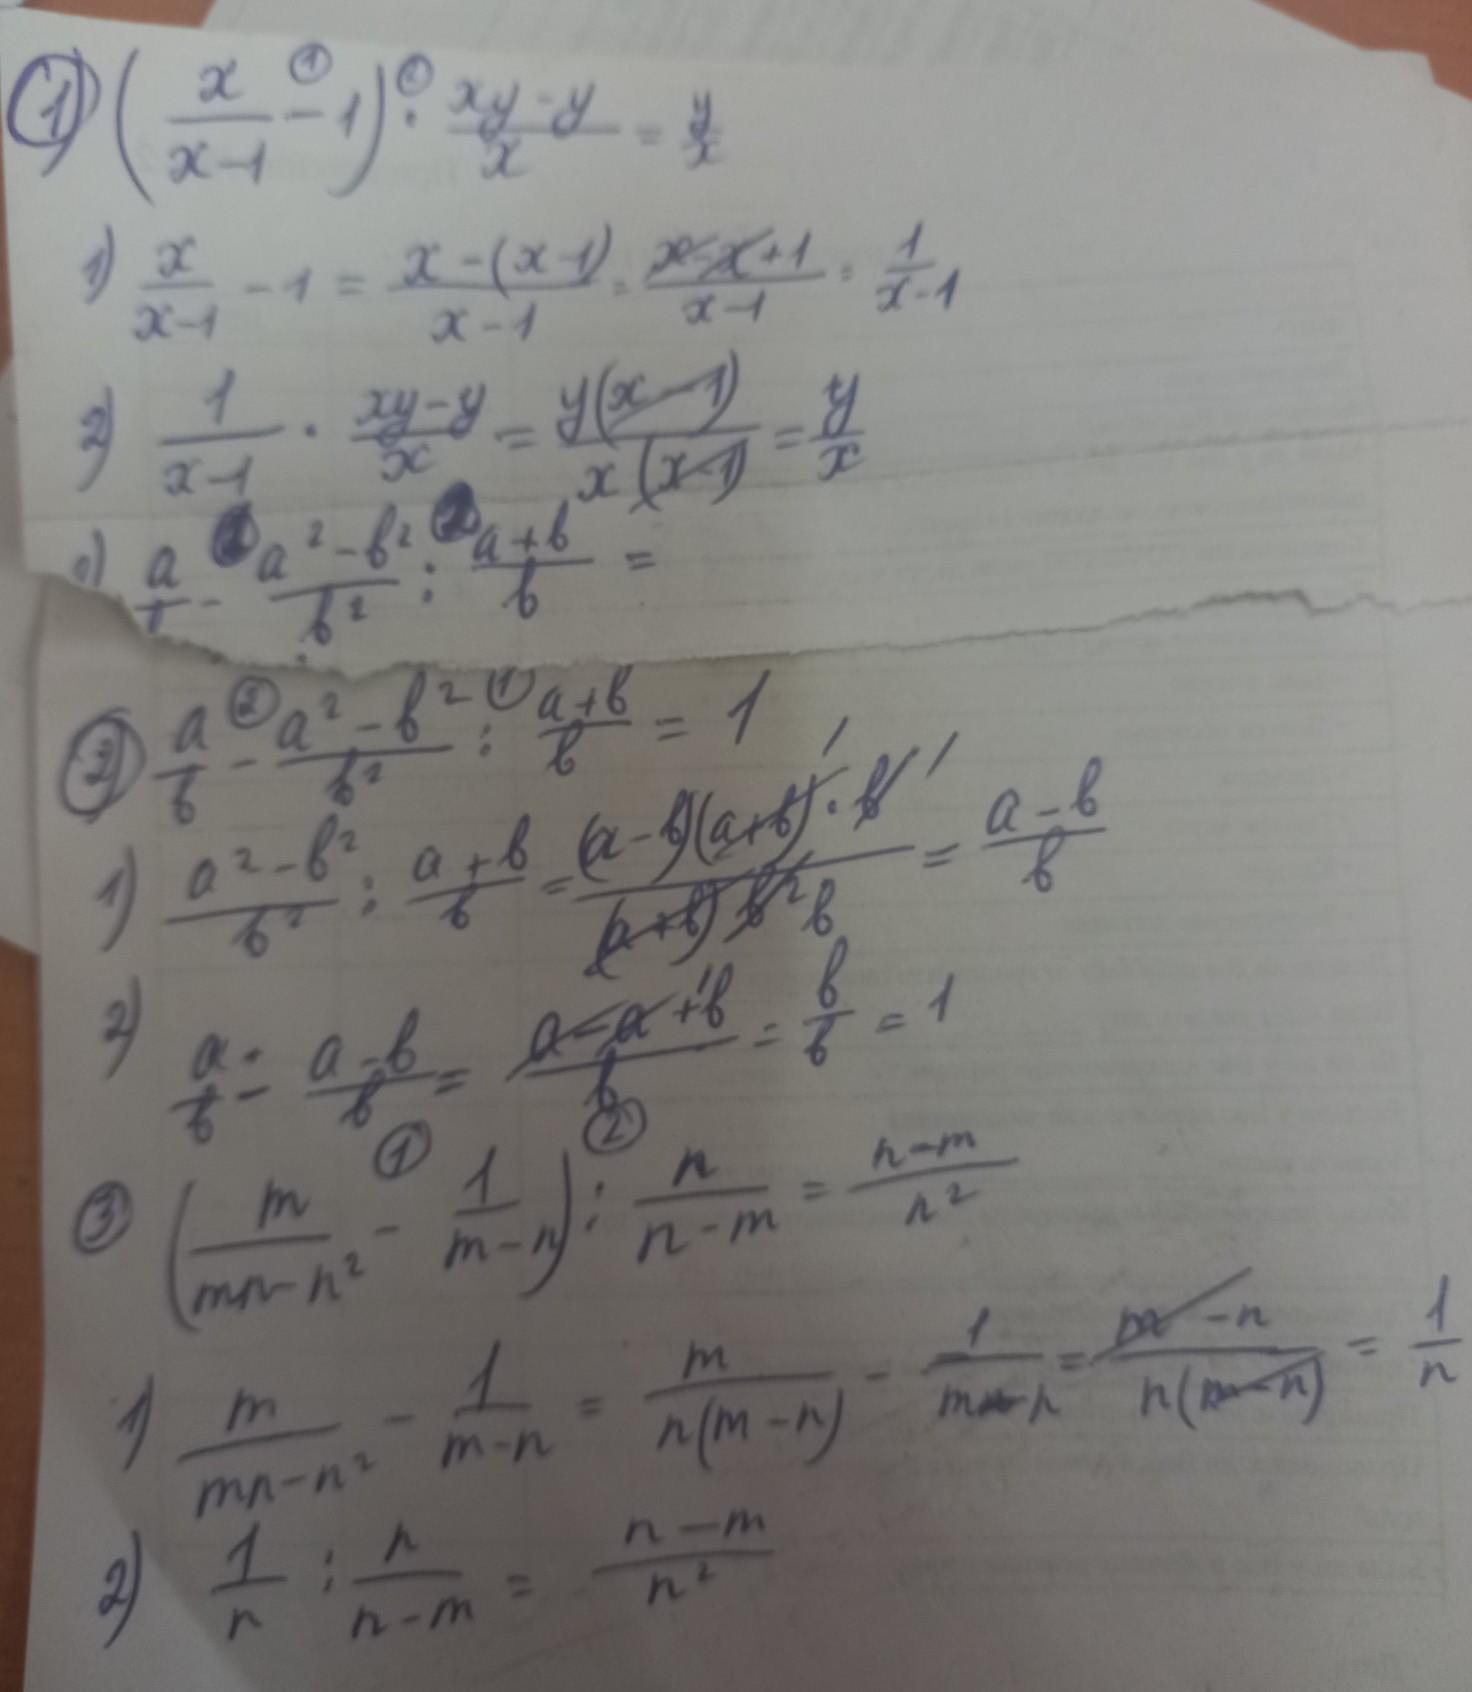 1) (x/(x-1) - 1) · (xy-y)/x = y/x
1) x/(x-1) - 1 = (x-(x-1))/(x-1) = (x-x+1)/(x-1) = 1/(x-1)
2) 1/(x-1) · (xy-y)/x = y(x-1)/(x(x-1)) = y/x
a/ - (a²-b²)/b² : (a+b)/b =
2) a/b - (a²-b²)/b² : (a+b)/b = 1
1) (a²-b²)/b² : (a+b)/b = (a-b)(a+b)·b/((a+b) b² b) = (a-b)/b
2) a/b - (a-b)/b = (a-a+b)/b = b/b = 1
3) (m/(mn-n²) - 1/(m-n)) : n/(n-m) = (n-m)/n²
1) m/(mn-n²) - 1/(m-n) = m/(n(m-n)) - 1/(m-n) = (m-n)/(n(m-n)) = 1/n
2) 1/n : n/(n-m) = (n-m)/n²